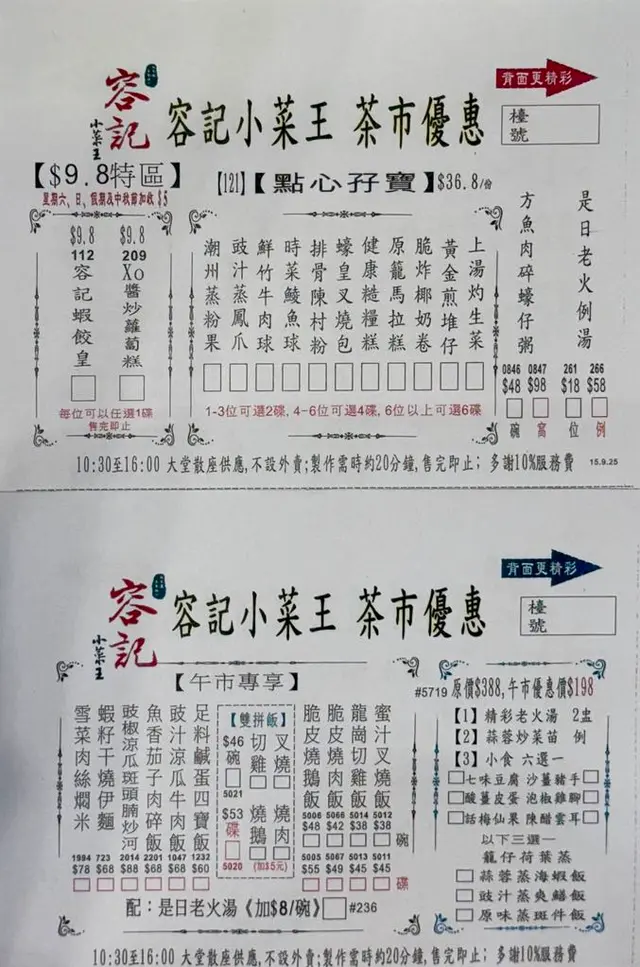 背面更精彩
容記
小菜王
容記小菜王 茶市優惠
檯號
【$9.8特區】
星期六、日、假期及中秋節加收 $5
【121】【點心孖寶】$36.8/份
$9.8
112
容記蝦餃皇
$9.8
209
Xo醬炒蘿蔔糕
每位可以任選1碟
售完即止
潮州蒸粉果
豉汁蒸鳳爪
鮮竹牛肉球
時菜鯪魚球
排骨陳村粉
蠔皇叉燒包
健康糙糧糕
原籠馬拉糕
脆炸椰奶卷
黃金煎堆仔
上湯灼生菜
1-3位可選2碟, 4-6位可選4碟, 6位以上可選6碟
方魚肉碎蠔仔粥
0846 0847
$48 $98
碗 窩
是日老火例湯
261 266
$18 $58
位 例
10:30至16:00 大堂散座供應,不設外賣;製作需時約20分鐘,售完即止; 多謝10%服務費 15.9.25
背面更精彩
容記
小菜王
容記小菜王 茶市優惠
檯號
【午市專享】
雪菜肉絲燜米
1994
$78
蝦籽干燒伊麵
723
$68
豉椒涼瓜斑頭腩炒河
2014
$88
魚香茄子肉碎飯
2201
$68
豉汁涼瓜牛肉飯
1047
$68
足料鹹蛋四寶飯
1232
$60
【雙拼飯】
$46
碗
5021
$53
碟
5020
切雞
叉燒
燒鵝
燒肉
(加$5元)
脆皮燒鵝飯
5006
$48
5005
$55
脆皮燒肉飯
5066
$42
5067
$49
龍崗切雞飯
5014
$38
5013
$45
蜜汁叉燒飯
5012
$38
5011
$45
碗
碟
配：是日老火湯《加$8/碗》 #236
#5719 原價$388,午市優惠價$198
【1】精彩老火湯 2盅
【2】蒜蓉炒菜苗 例
【3】小食 六選一
七味豆腐 沙薑豬手
酸薑皮蛋 泡椒雞腳
話梅仙果 陳醋雲耳
以下三選一
籠仔荷葉蒸
蒜蓉蒸海蝦飯
豉汁蒸爽鱔飯
原味蒸斑件飯
10:30至16:00 大堂散座供應,不設外賣;製作需時約20分鐘,售完即止; 多謝10%服務費